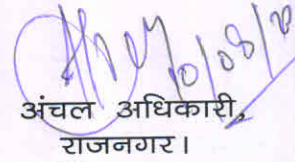 10/08/20
अंचल अधिकारी,
राजनगर।